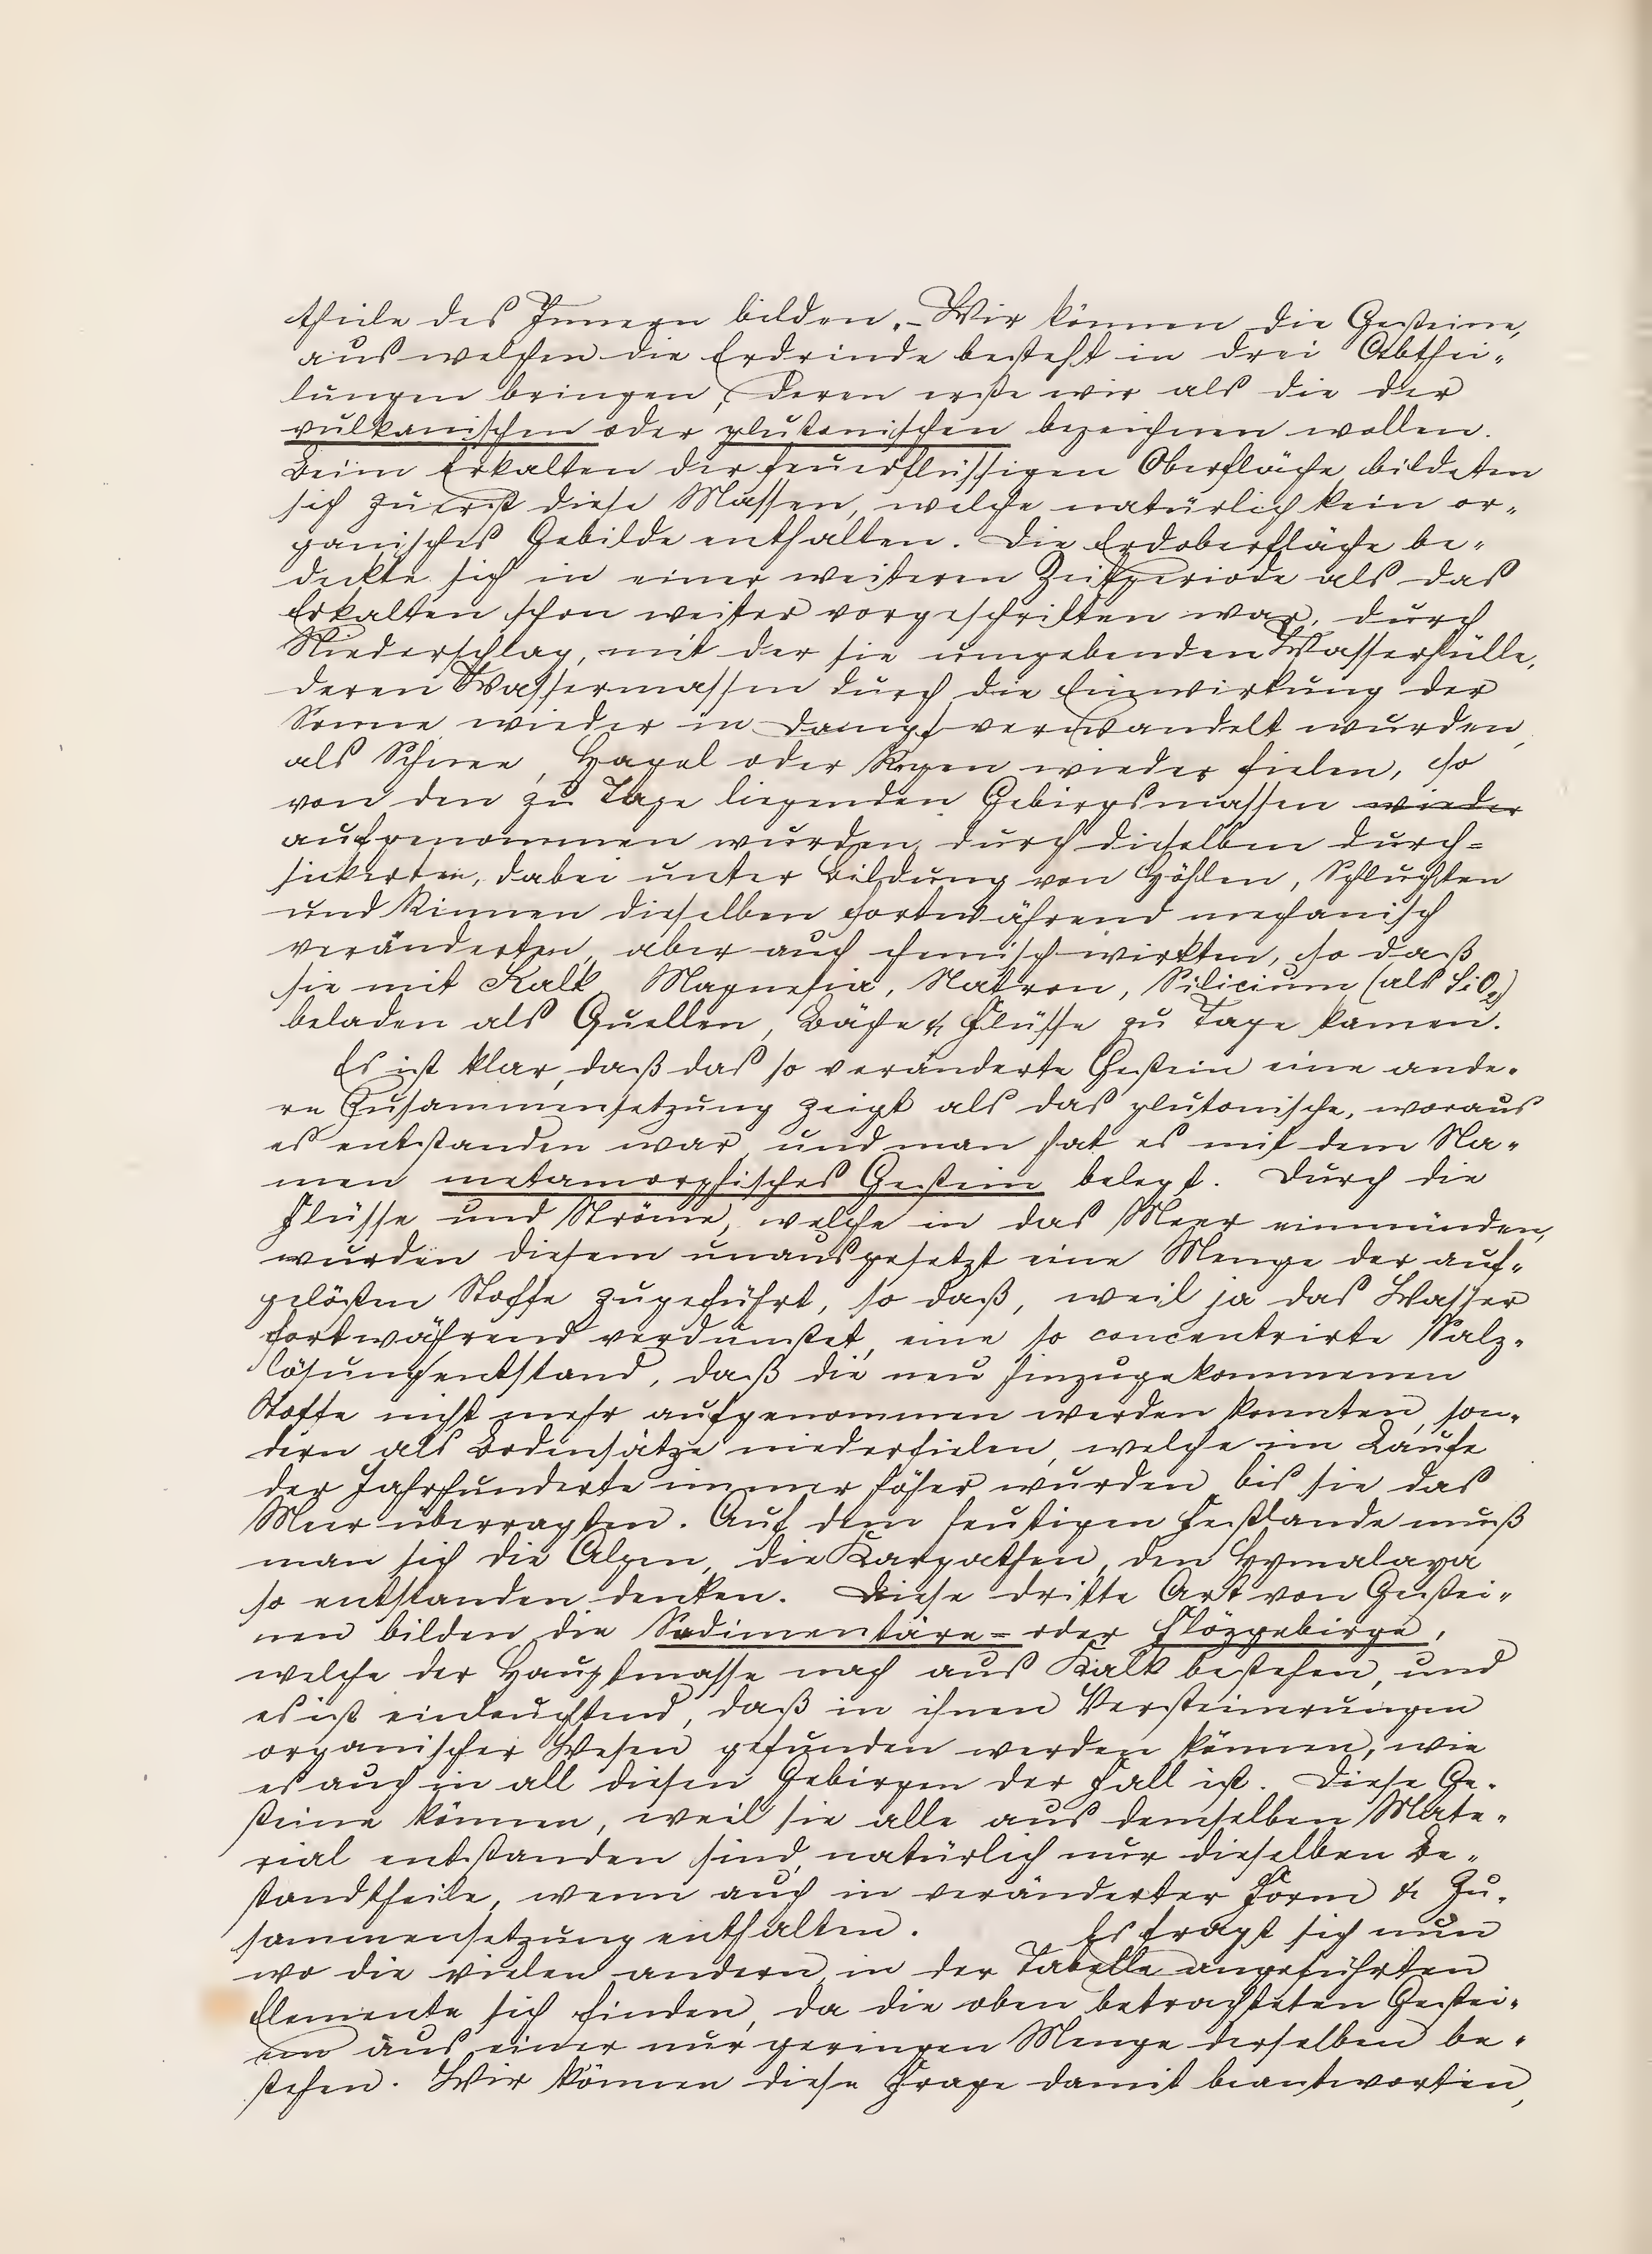 theile des Innern bilden. – Wir können die Gesteine,
aus welchen die Erdrinde besteht in drei Abthei-
lungen bringen, deren erste wir als die der
vulkanischen oder plutonischen bezeichnen wollen.
Beim Erkalten der feuerflüssigen Oberfläche bildeten
sich zuerst diese Massen, welche natürlich kein or-
ganisches Gebilde enthalten. Die Erdoberfläche be-
deckte sich in einer weiteren Zeitperiode als das
Erkalten schon weiter vorgeschritten war, durch
Niederschlag, mit der sie umgebenden Wasserhülle,
deren Wassermassen durch die Einwirkung der
Sonne wieder in Dampf verwandelt wurden,
als Schnee, Hagel oder Regen wieder fielen, so
von den zu Tage liegenden Gebirgsmassen wieder
aufgenommen wurden, durch dieselben durch-
sickerten, dabei unter Bildung von Höhlen, Schluchten
und Rinnen dieselben fortwährend mechanisch
veränderten, aber auch chemisch wirkten, so daß
sie mit Kalk, Magnesia, Natron, Silicium (als SiO2)
beladen als Quellen, Bäche & Flüsse zu Tage kamen.
Es ist klar, daß das so veränderte Gestein eine ande-
re Zusammensetzung zeigt als das plutonische, woraus
es entstanden war, und man hat es mit dem Na-
men metamorphisches Gestein belegt. Durch die
Flüsse und Ströme, welche in das Meer einmünden,
wurden diesem unausgesetzt eine Menge der auf-
gelößten Stoffe zugeführt, so daß, weil ja das Wasser
fortwährend verdunstet, eine so concentrirte Salz-
lösung entstand, daß die neu hinzugekommenen
Stoffe nicht mehr aufgenommen werden konnten, son-
dern als Bodensätze niederfielen, welche im Laufe
der Jahrhunderte immer höher wurden bis sie das
Meer überragten. Auf dem heutigen Festlande muß
man sich die Alpen, die Karpathen, den Hymalaya
so entstanden denken. Diese dritte Art von Gestei-
nen bilden die Sedimentäre- oder Flözgebirge,
welche der Hauptmasse nach aus Kalk bestehen, und
es ist einleuchtend, daß in ihnen Versteinerungen
organischer Wesen gefunden werden können, wie
es auch in all diesen Gebirgen der Fall ist. Diese Ge-
steine können, weil sie alle aus demselben Mate-
rial entstanden sind, natürlich nur dieselben Be-
standtheile, wenn auch in veränderter Form & Zu-
sammensetzung enthalten. Es fragt sich nun
wo die vielen andern, in der Tabelle angeführten
Elemente sich finden, da die oben betrachteten Gestei-
ne aus einer nur geringen Menge derselben be-
stehen. Wir können diese Frage damit beantworten,